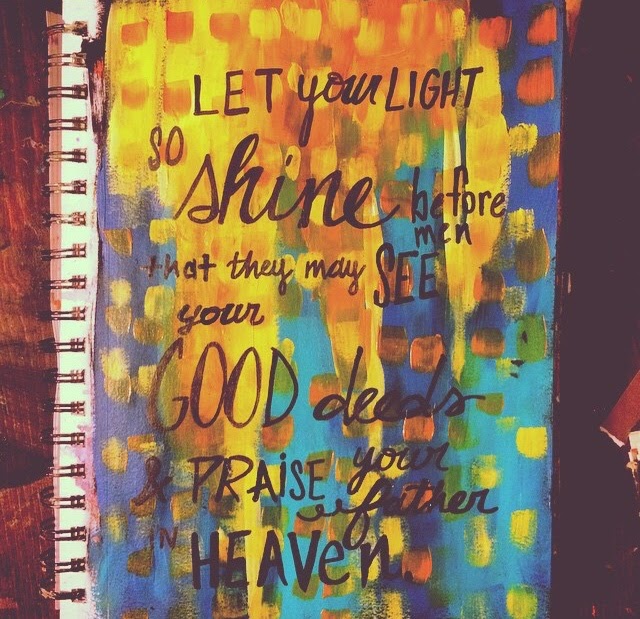 LET your LIGHT
so shine before
men
that they may SEE
your
GOOD deeds
& PRAISE your
father
IN HEAVEN.